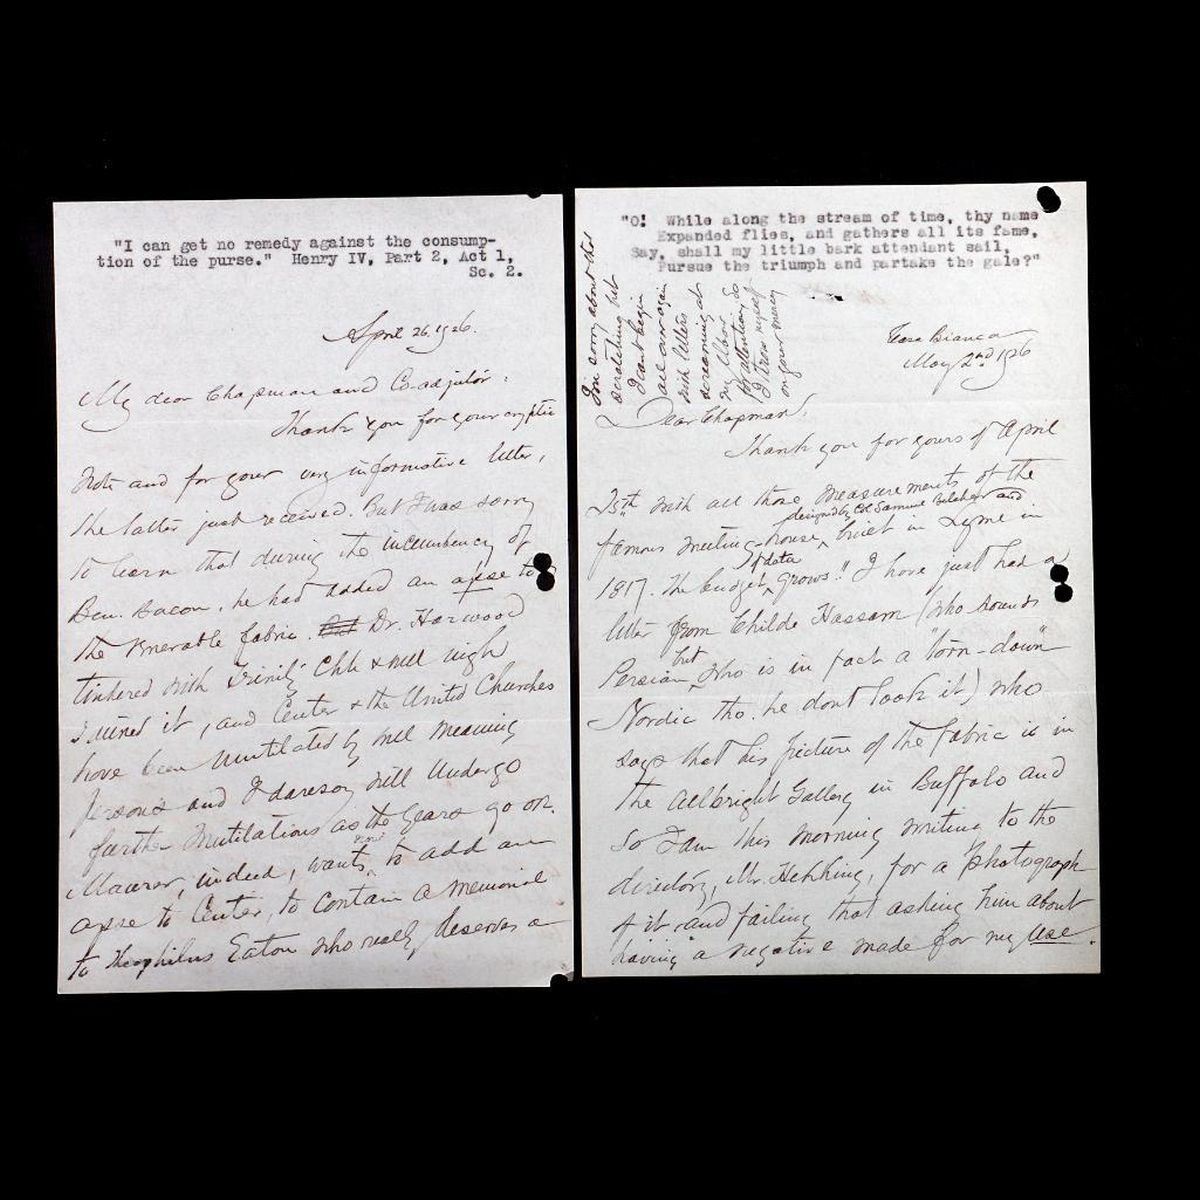 "I can get no remedy against the consump-
tion of the purse." Henry IV, Part 2, Act 1,
Sc. 2.
April 26. 1926.
My dear Chapman and Co-adjutor:
Thank you for your cryptic
note and for your very informative letter,
the latter just received. But I was sorry
to learn that during the incumbency of
Ben. Bacon, he had added an apse to
the venerable fabric. But Dr. Harwood
tinkered with Trinity Chh & well nigh
ruined it, and Center & the United Churches
have been mutilated by well meaning
persons and I daresay will undergo
further mutilations as the years go on.
Maurer, indeed, wants now to add an
apse to Center, to contain a memorial
to Theophilus Eaton who really deserves a
"O! While along the stream of time, thy name
Expanded flies, and gathers all its fame,
Say, shall my little bark attendant sail,
Pursue the triumph and partake the gale?"
I'm sorry about that
scratching but
I can't begin
all over again
with letters
screaming at
my elbow
for attention. So
I throw myself
on your mercy
Casa Bianca
May 2nd 1926
Dear Chapman:
Thank you for yours of April
25th with all those measurements of the
famous meeting-house, designed by Col Samuel Belcher and built in Lyme in
1817. The budget of data grows!! I have just had a
letter from Childe Hassam (who sounds
Persian but who is in fact a "torn-down"
Nordic tho. he dont look it) who
says that his picture of the fabric is in
the Albright Gallery in Buffalo and
so I am this morning writing to the
director, Mr. Hekking, for a photograph
of it and failing that asking him about
having a negative made for my use.